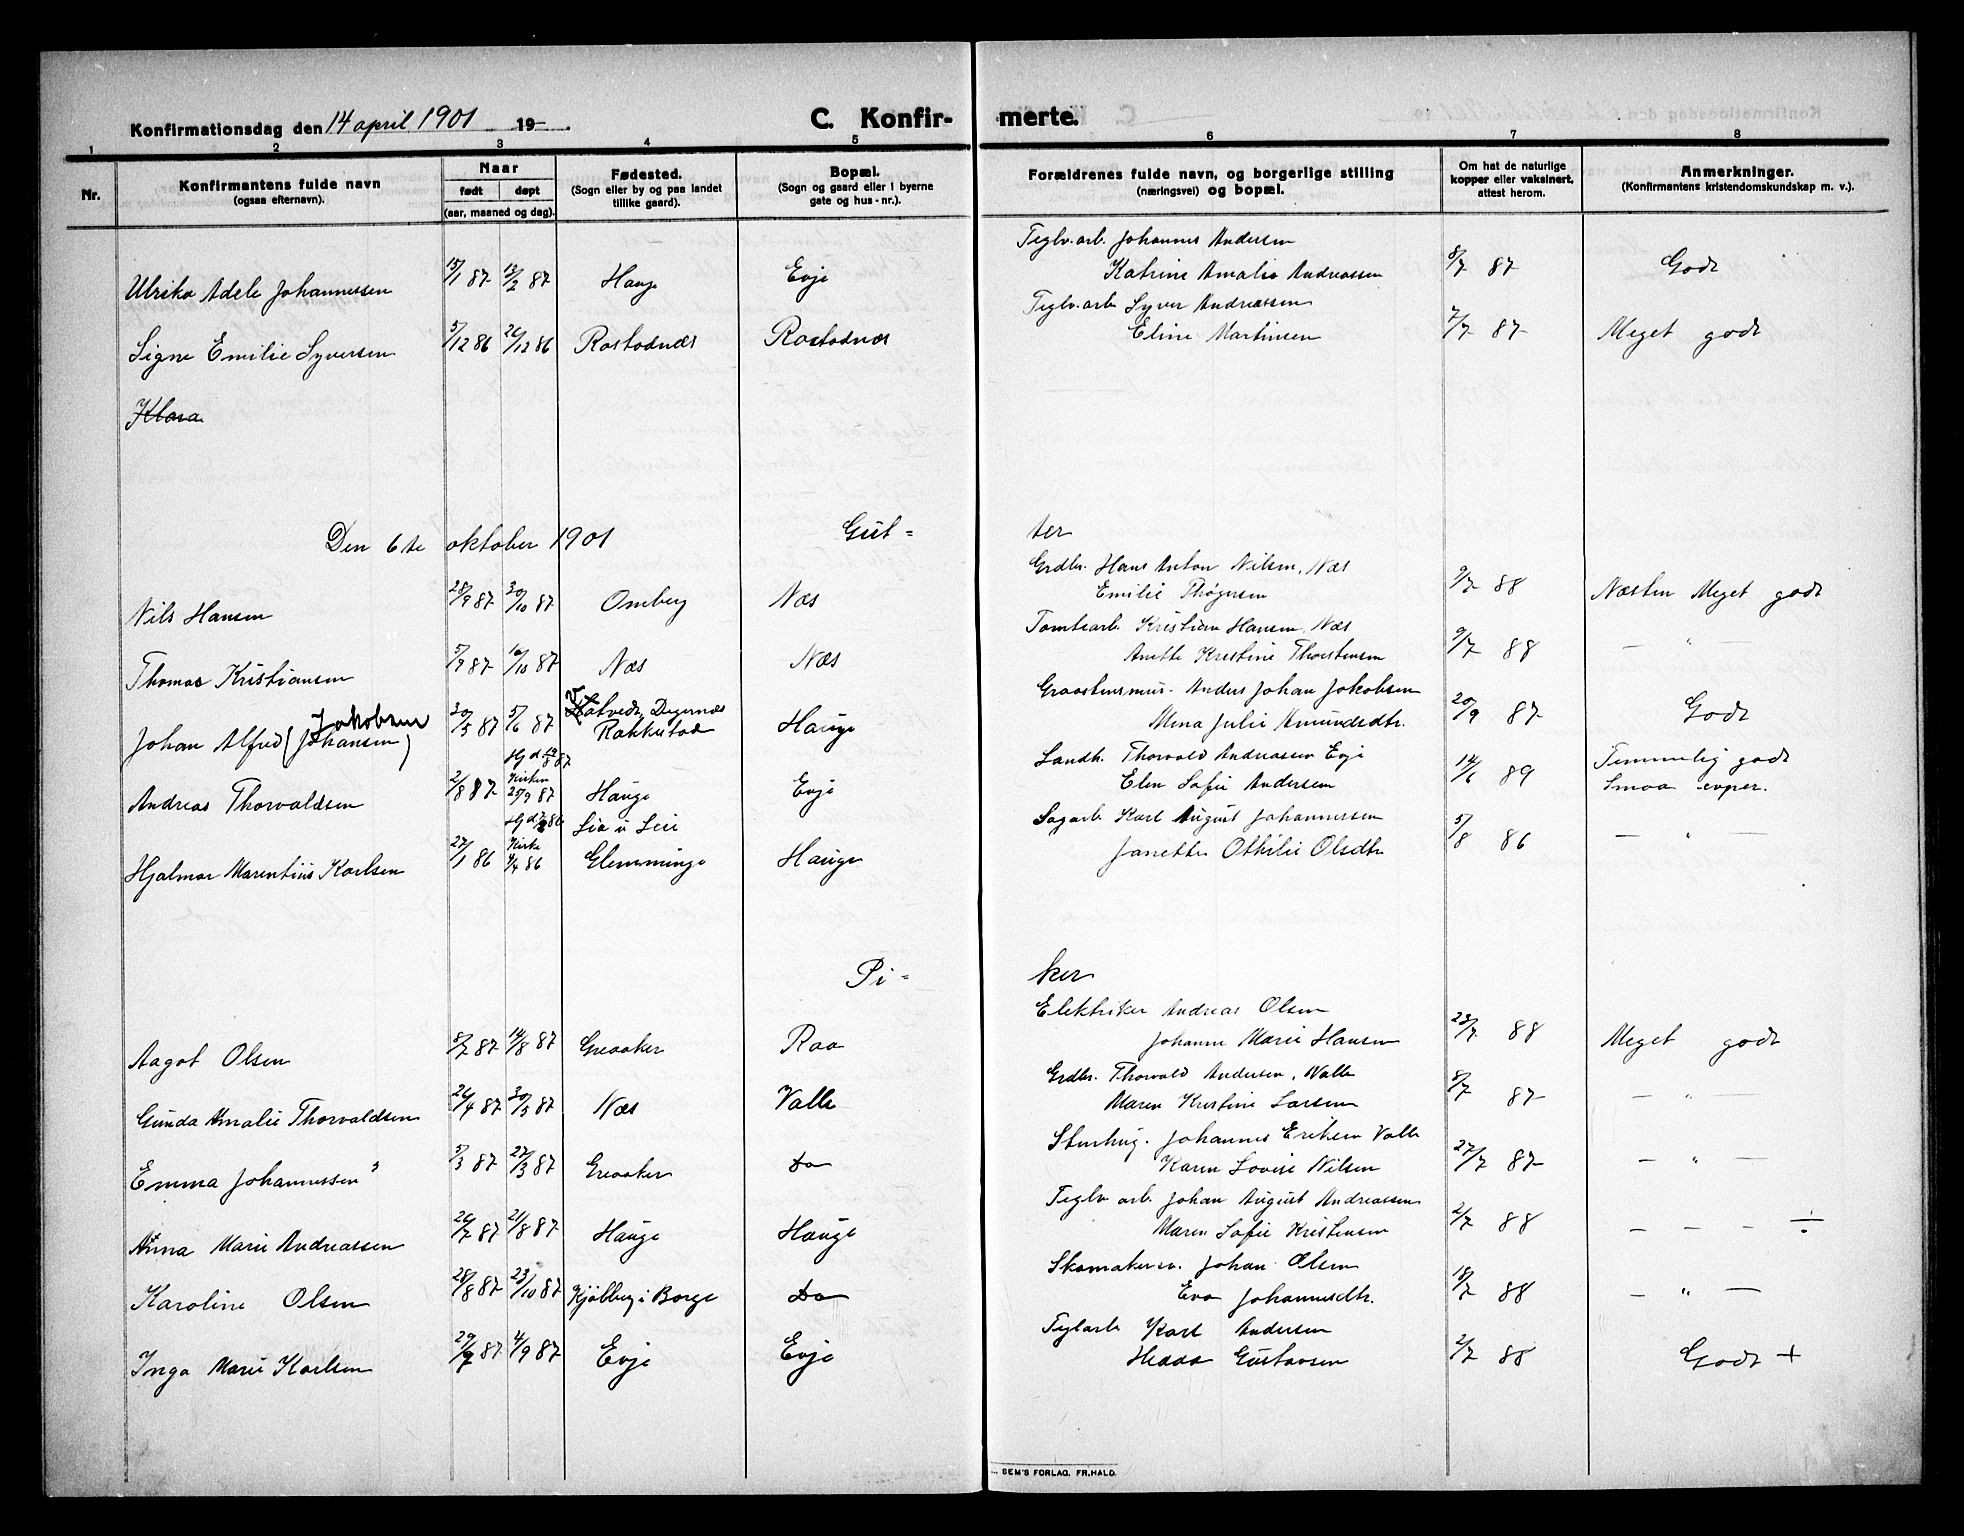 Konfirmationsdag den 14 april 1901 19 C. Konfir- merte.
1 2 3 4 5 6 7 8
Nr. Konfirmantens fulde navn (ogsaa efternavn). Naar født døpt (aar, maaned og dag). Fødested. (Sogn eller by og paa landet tillike gaard). Bopæl. (Sogn og gaard eller i byerne gate og hus-nr.). Forældrenes fulde navn, og borgerlige stilling (næringsvei) og bopæl. Om hat de naturlige kopper eller vaksinert, attest herom. Anmerkninger. (Konfirmantens kristendomskundskap m. v.).
Teglv.arb. Johannes Andersen
Ulrika Adele Johannessen 15/1 87 13/2 87 Hauge Evje Katrine Amalia Andreassen 8/7 87 Godt
Teglv.arb Syver Andreassen
Signe Emilie Syversen 5/12 86 26/12 86 Rostadnæs Rostadnæs Eline Martinsen 7/7 87 Meget godt
Klara
Den 6te oktober 1901 Gut- ter
Grdbr. Hans Anton Nilsen, Næs
Nils Hansen 28/9 87 30/10 87 Omberg Næs Emilie Thøgersen 9/7 88 Næsten Meget godt
Tomtearb. Kristian Hansen, Næs
Thomas Kristiansen 5/9 87 16/10 87 Næs Næs Anette Kristine Thorstensen 9/7 88 — " —
Jakobsen Tatvedt, Degernæs Graastensmur. Anders Johan Jakobsen
Johan Alfred (Johansen) 30/3 87 5/6 87 Rakkestad Hauge Mena Julie Amundsdtr. 20/9 87 Godt
Hj d 19/8 87 Landh. Thorvald Andreassen Evje Temmelig godt
Andreas Thorvaldsen 2/8 87 Kirken 25/9 87 Hauge Evje Elen Sofie Andersen 14/6 89 Smaa evner.
Hj d 7/2 86 Lia v Leie Sagarb Karl August Johannessen
Hjalmar Marentius Karlsen 27/1 86 Kirke 4/4 86 Glemminge Hauge Janette Othilie Olsdtr 5/8 86 — " —
Pi- ker
Elektriker Andreas Olsen
Aagot Olsen 8/7 87 14/8 87 Greaaker Raa Johanne Marie Hansen 23/7 88 Meget godt
Grdbr. Thorvald Andersen, Valle
Gunda Amalie Thorvaldsen 26/4 87 30/5 87 Næs Valle Maren Kristine Larsen 8/7 87 — " —
Stenhug. Johannes Eriksen Valle
Emma Johannessen 5/3 87 27/3 87 Greaaker Do Karen Lovise Nilsen 27/7 87 — " —
Teglv arb. Johan August Andreassen
Anna Marie Andreassen 26/7 87 21/8 87 Hauge Hauge Maren Sofie Kristensen 2/7 88 — — — ÷
Skomakersv. Johan Olsen
Karoline Olsen 28/8 87 23/10 87 Kjølberg i Borge Do Eva Johannesdtr. 18/7 88 — " —
Teglarb Karl Andersen
Inga Marie Karlsen 29/7 87 4/9 87 Evje Evje Hedda Gustavsen 2/7 88 Godt +
SEM'S FORLAG. FR.HALD.